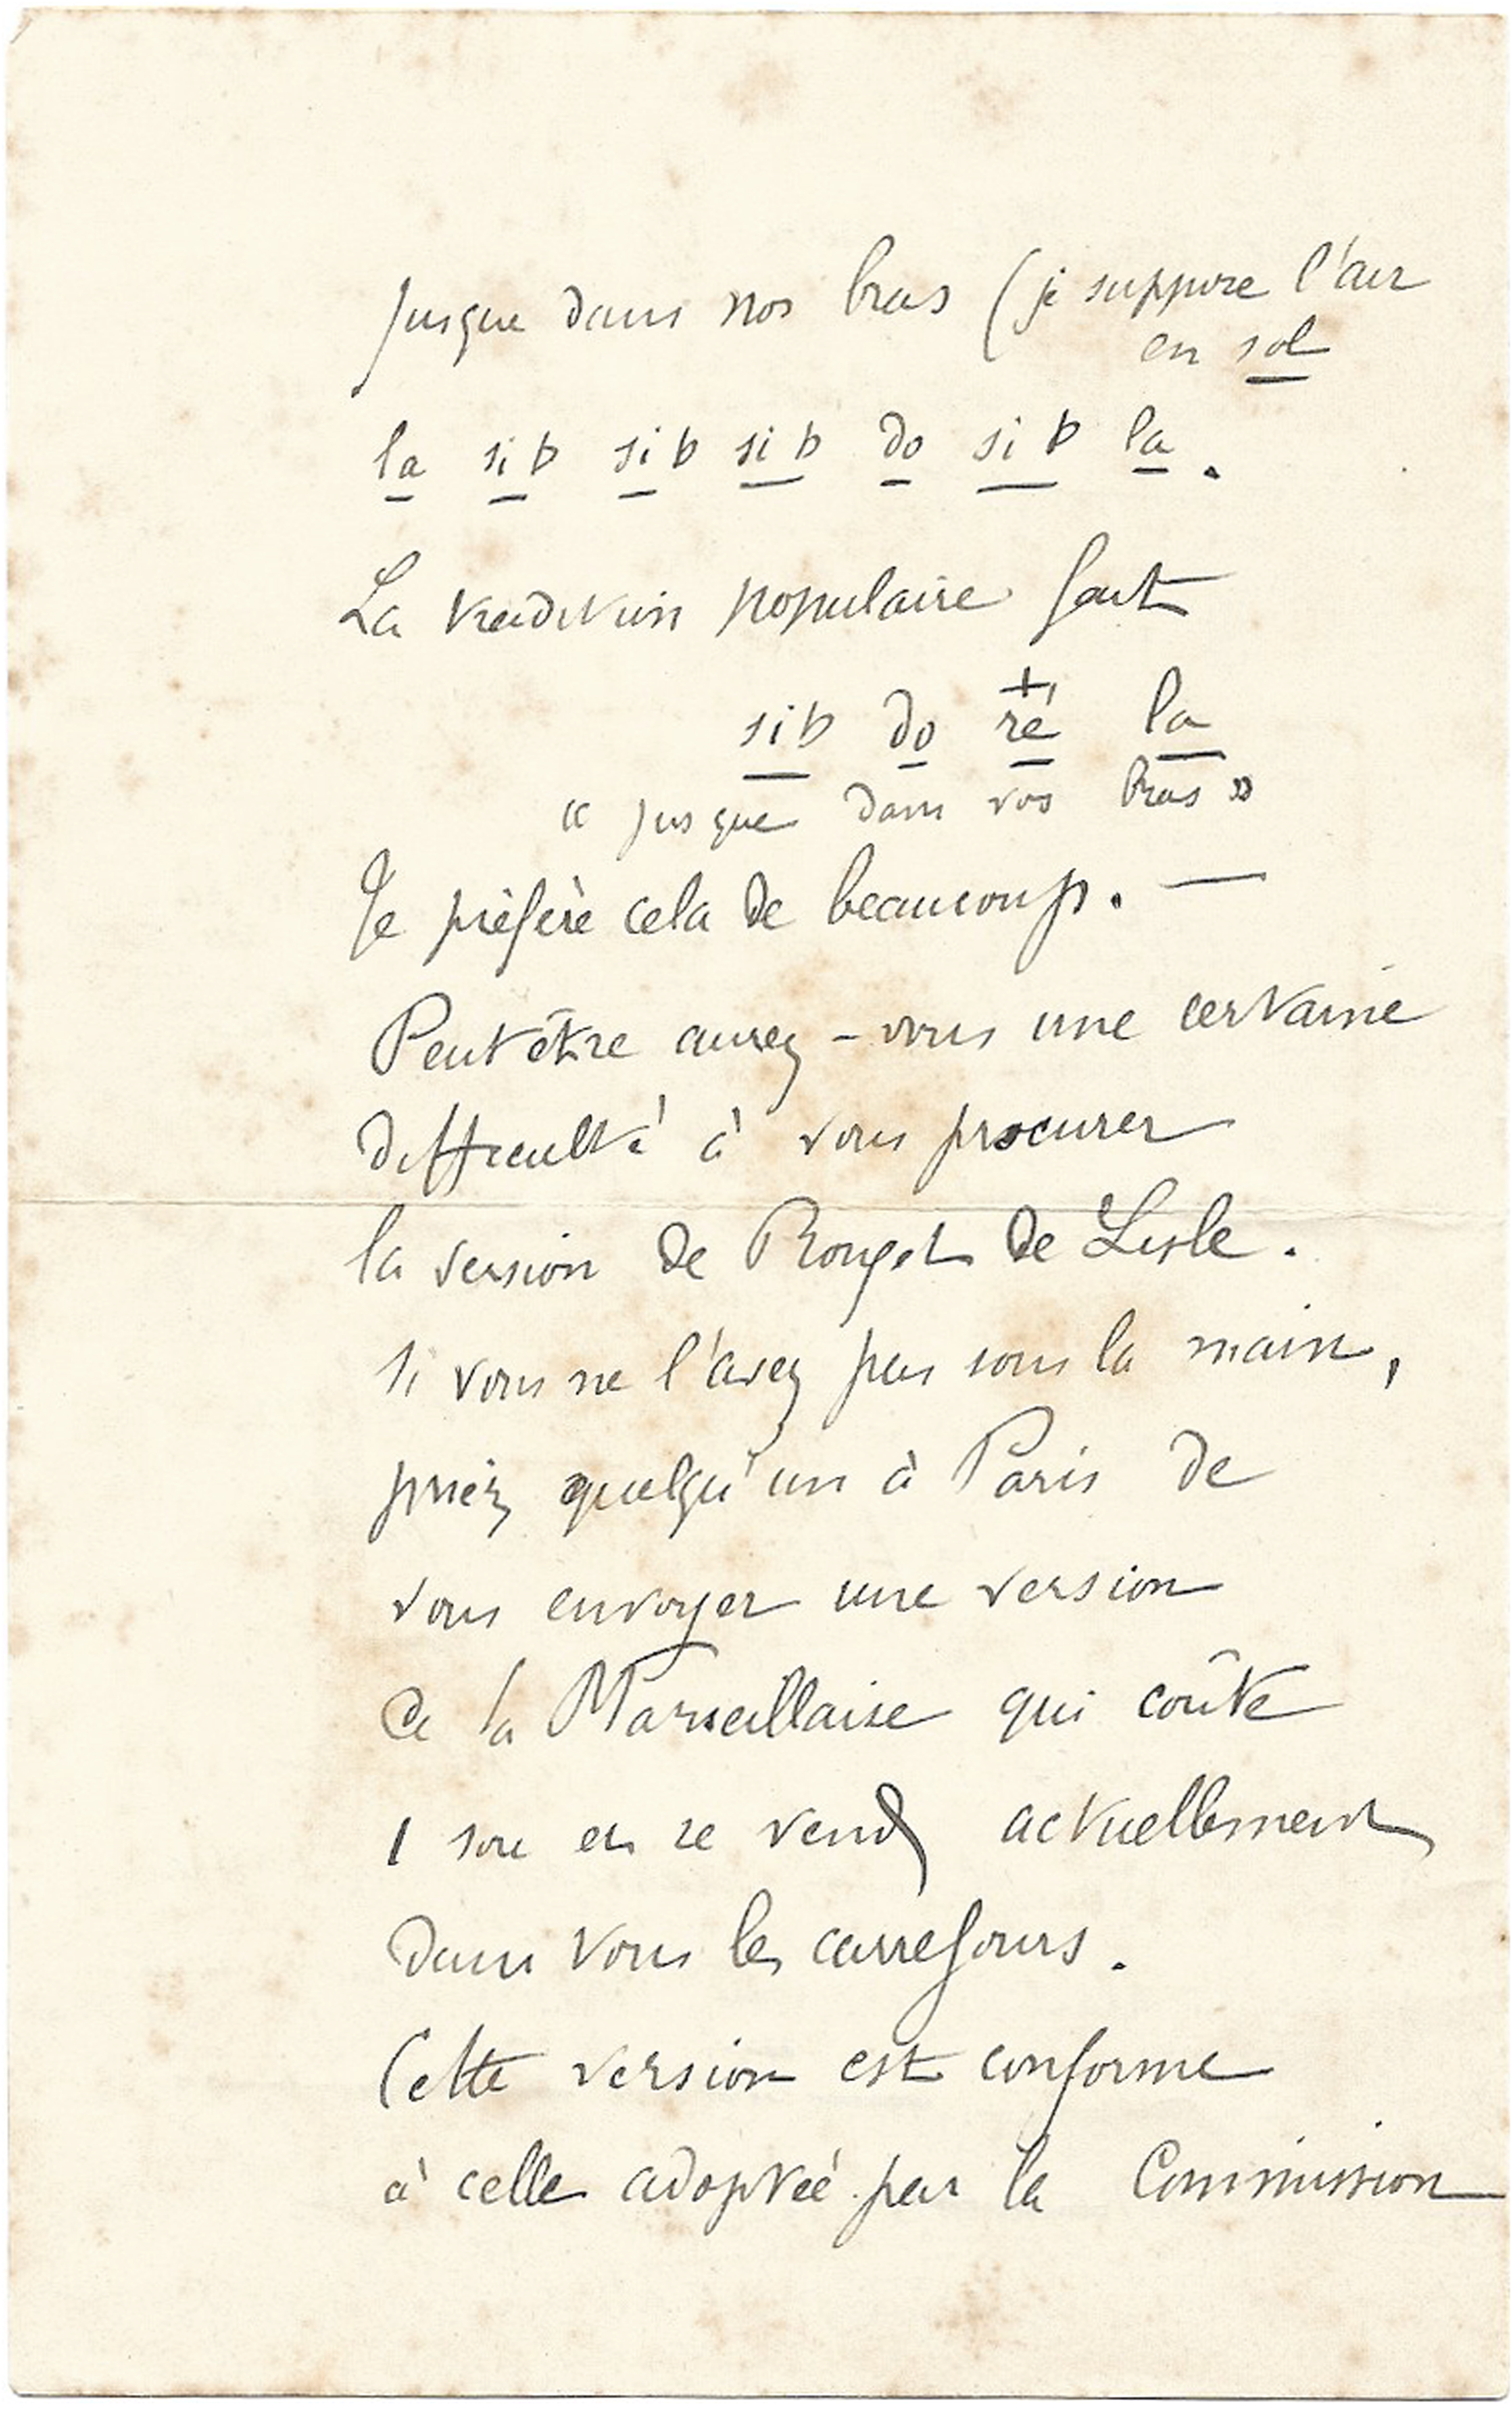 jusque dans nos bras (je suppose l'air
en sol
la si b si b si b do si b la.
La tradition populaire fait
+
si b do ré la
« jusque dans vos bras »
Je préfère cela de beaucoup. —
Peut être aurez-vous une certaine
difficulté à vous procurer
la version de Rouget de Lisle.
Si vous ne l'avez pas sous la main,
priez quelqu'un à Paris de
vous envoyer une version
de la Marseillaise qui coûte
1 sou et se vend actuellement
dans tous les carrefours.
Cette version est conforme
à celle adoptée par la Commission